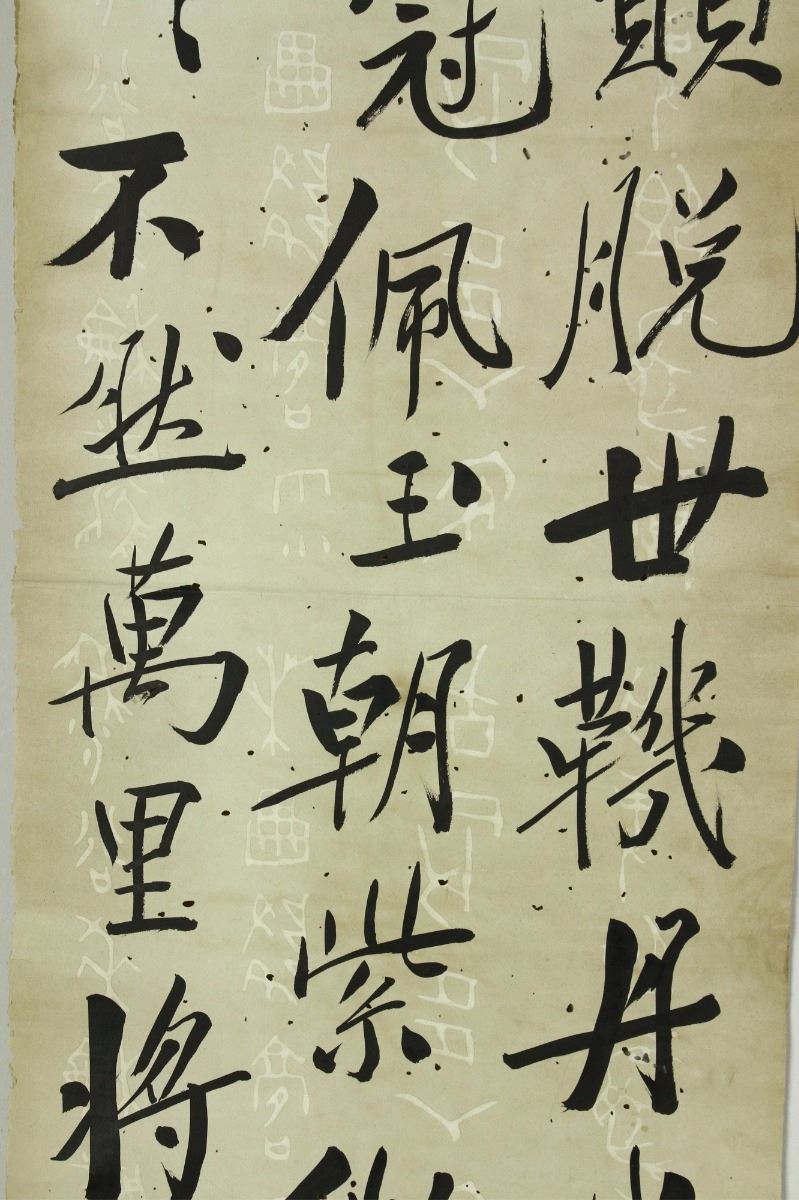 脱世鞿丹
冠佩玉朝紫
不然萬里將